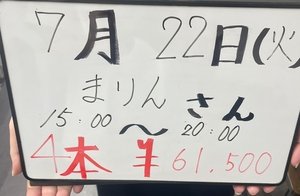 7月 22日(火)
まりんさん
15:00〜20:00
4本 ¥61,500